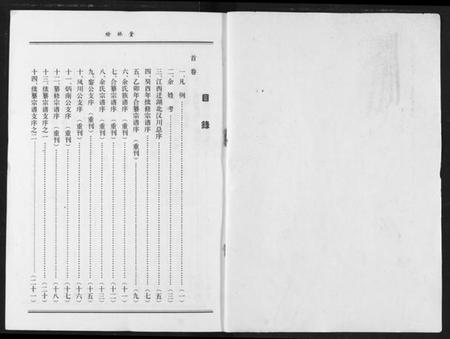 绘林堂
目錄
首卷
一、凡例………(一)
二、余姓考………(三)
三、江西迁湖北汉川总序………(五)
四、癸酉年续修宗谱序………(七)
五、乙卯年合纂宗谱序(重刊)………(九)
六、余氏族谱序(重刊)………(十一)
七、合纂宗谱序(重刊)………(十二)
八、余氏宗谱序(重刊)………(十三)
九、黎公支序(重刊)………(十五)
十、凤川公支序(重刊)………(十六)
十一、炳南公支序(重刊)………(十七)
十二、纂修宗谱序(重刊)………(十八)
十三、续纂宗谱支序之一………(二十)
十四、续纂宗谱支序之二………(二十一)